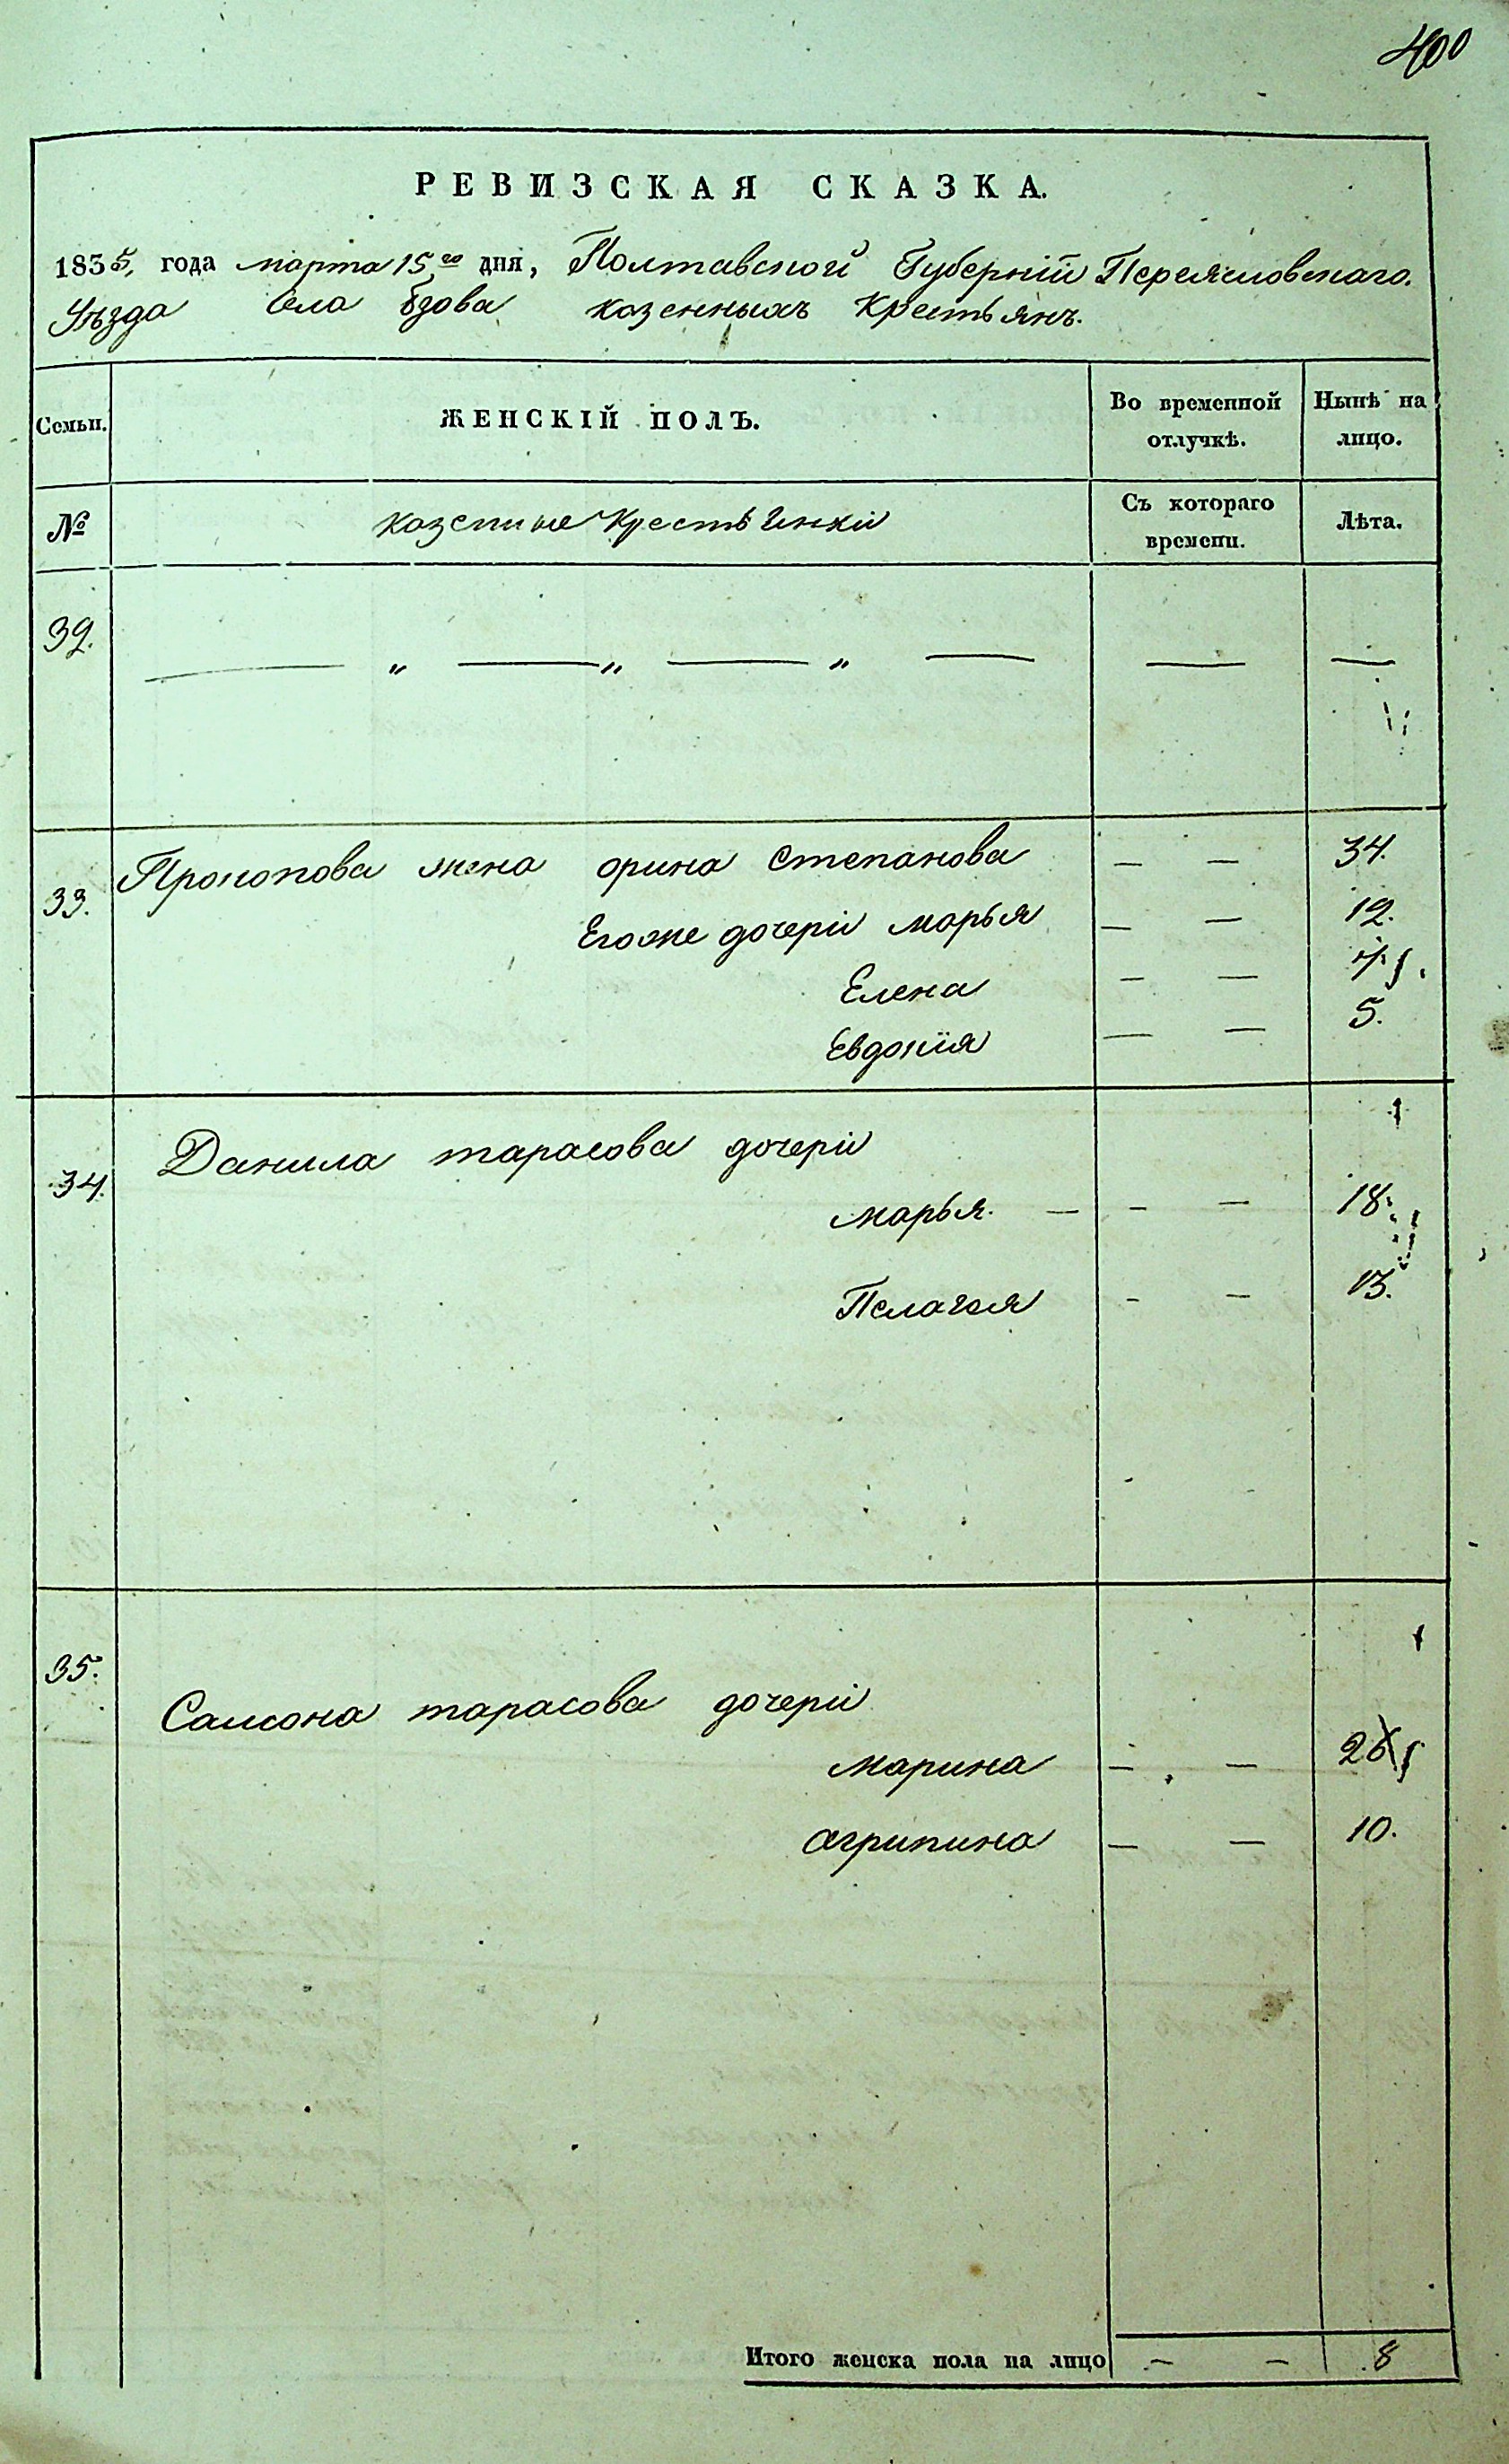 400
РЕВИЗСКАЯ СКАЗКА.
1835, года марта 15го дня, Полтавской Губернїи Переясловскаго.
Уѣзда села Бзова казенныхъ Крестьянъ.
Семьи. ЖЕНСКІЙ ПОЛЪ. Во временной отлучкѣ. Нынѣ на лицо.
№ казенные Крестьянкіи Съ котораго времени. Лѣта.
32. — „ — „ — „ — — —
33. Прокопова жена орина Степанова — — 34.
Егоже дочеріи марья — — 12.
Елена — — 7.
Евдокія — — 5.
34. Данила тарасова дочеріи
марья. — — — 18.
Пелагея — — 13.
35. Самсона тарасова дочеріи
марина — —
агрипина — — 10.
Итого женска пола на лицо — — 8